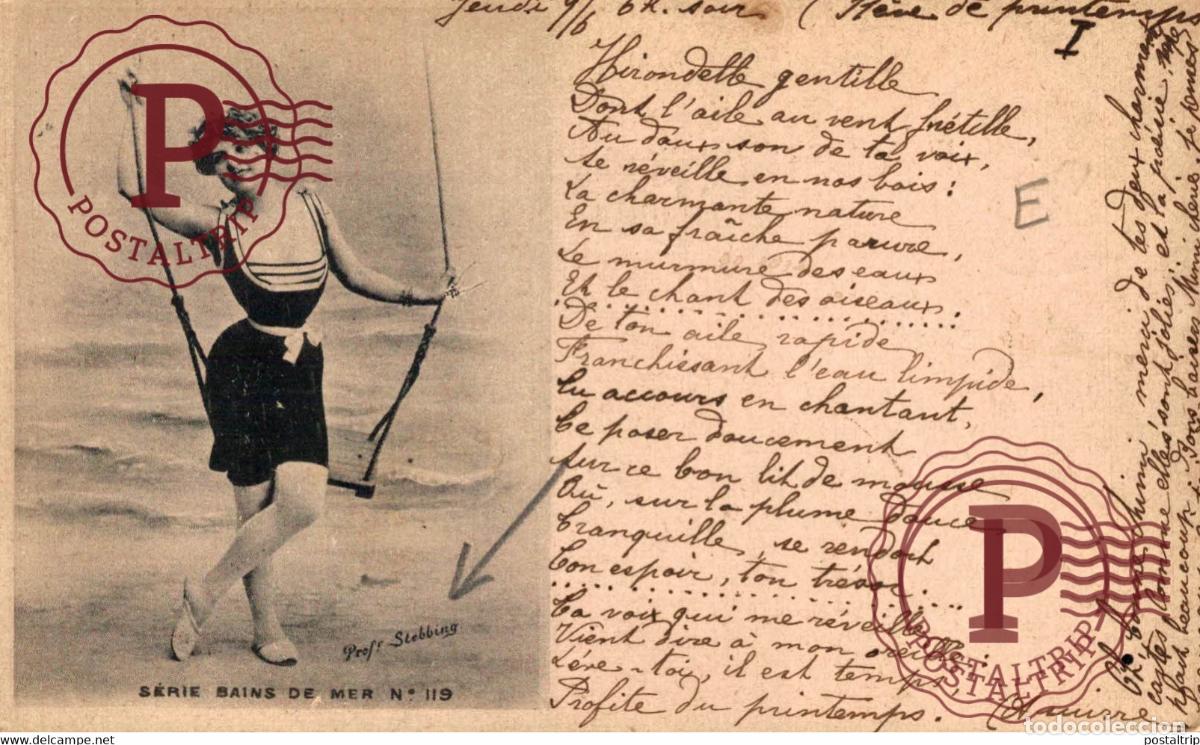 Jeudi 9/6 6h. soir (Rêve de printemps
I
Hirondelle gentille
Dont l'aile au vent frétille,
Au doux son de ta voix,
Se réveille en nos bois:
La charmante nature
En sa fraîche parure,
Le murmure des eaux
Et le chant des oiseaux.
De ton aile rapide
Franchissant l'eau limpide,
Tu accours en chantant,
Te poser doucement
Sur ce bon lit de mousse
Où, sur la plume douce
Tranquille, se rendort
Ton espoir, ton trésor
Ta voix qui me réveille
Vient dire à mon oreille:
Lève-toi, il est temps,
Profite du printemps.
E
merci de tes deux
cartes comme elles sont jolies, et la poésie, me
plait beaucoup. Bons baisers
Profr Stebbing
SÉRIE BAINS DE MER No 119
P
POSTALTRIP
P
POSTALTRIP
POSTALTRIP
todocoleccion
www.todocoleccion.net
postaltrip